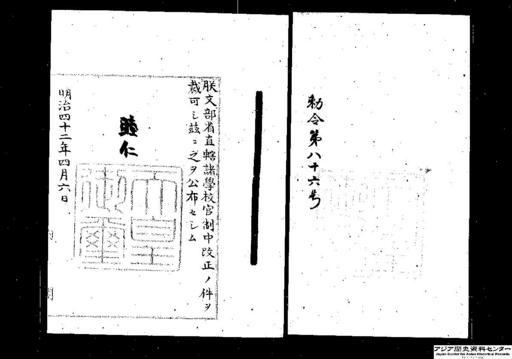 勅令第八十六号
朕文部省直轄諸學校官制中改正ノ件ヲ
裁可シ茲ニ之ヲ公布セシム
睦仁
天皇御璽
明治四十二年四月六日
内閣
アジア歴史資料センター
Japan Center for Asian Historical Records